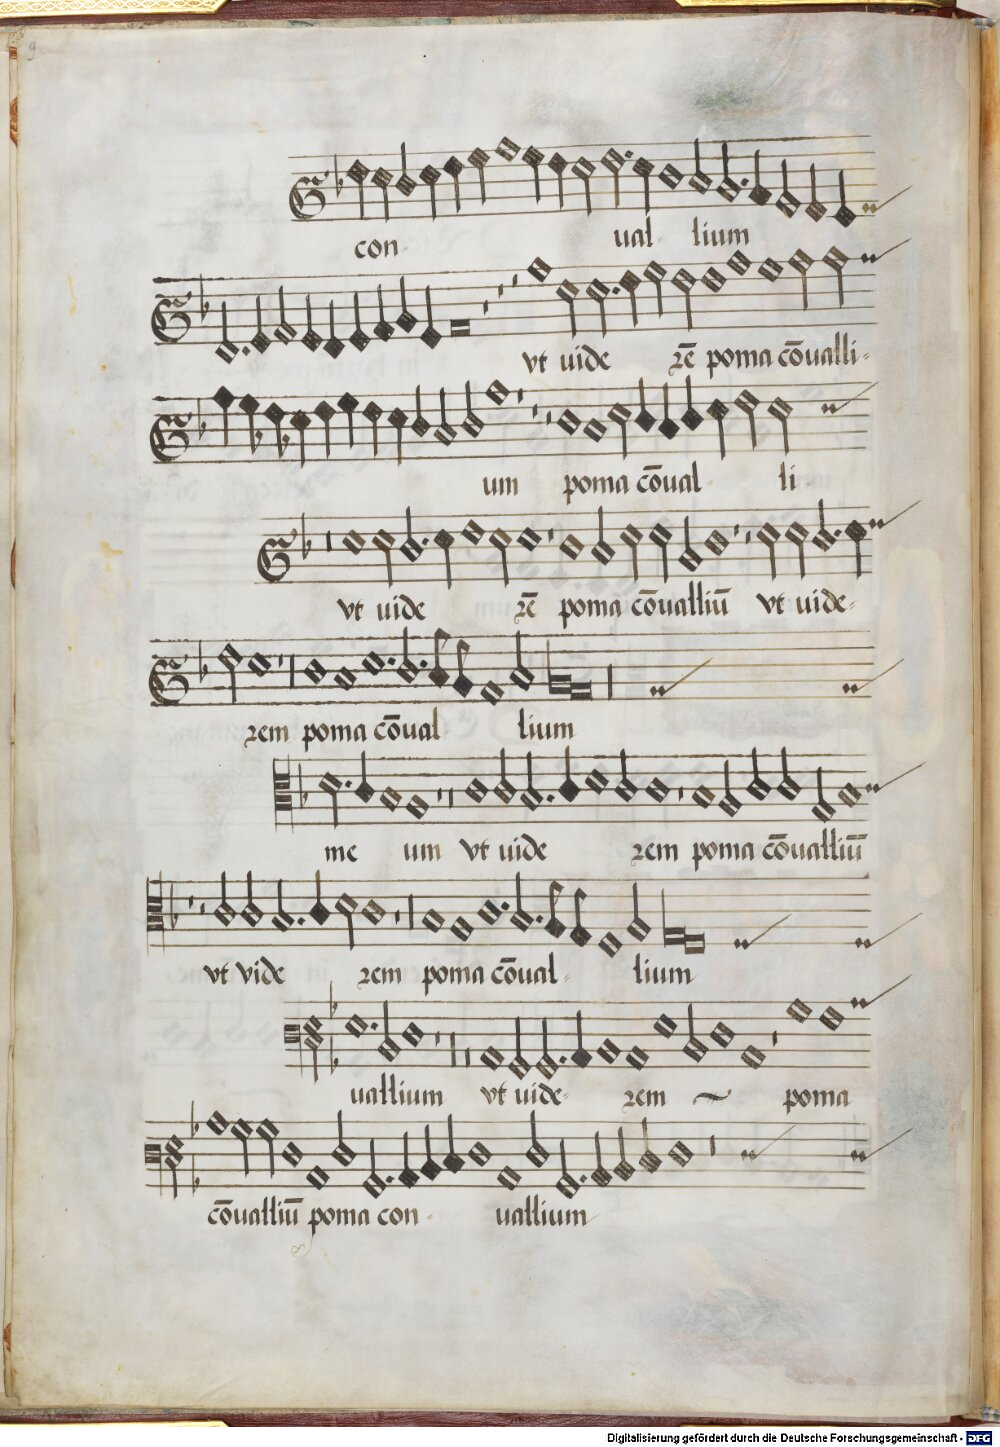 9
con- ual- lium
vt uide zē poma cōualli-
um poma cōual- li-
vt uide zē poma cōualliū vt uide-
zem poma cōual lium
me um vt uide zem poma cōualliū
vt vide zem poma cōual- lium
uallium vt uide- zem ~ poma
cōualliū poma con- uallium
Digitalisierung gefördert durch die Deutsche Forschungsgemeinschaft - DFG